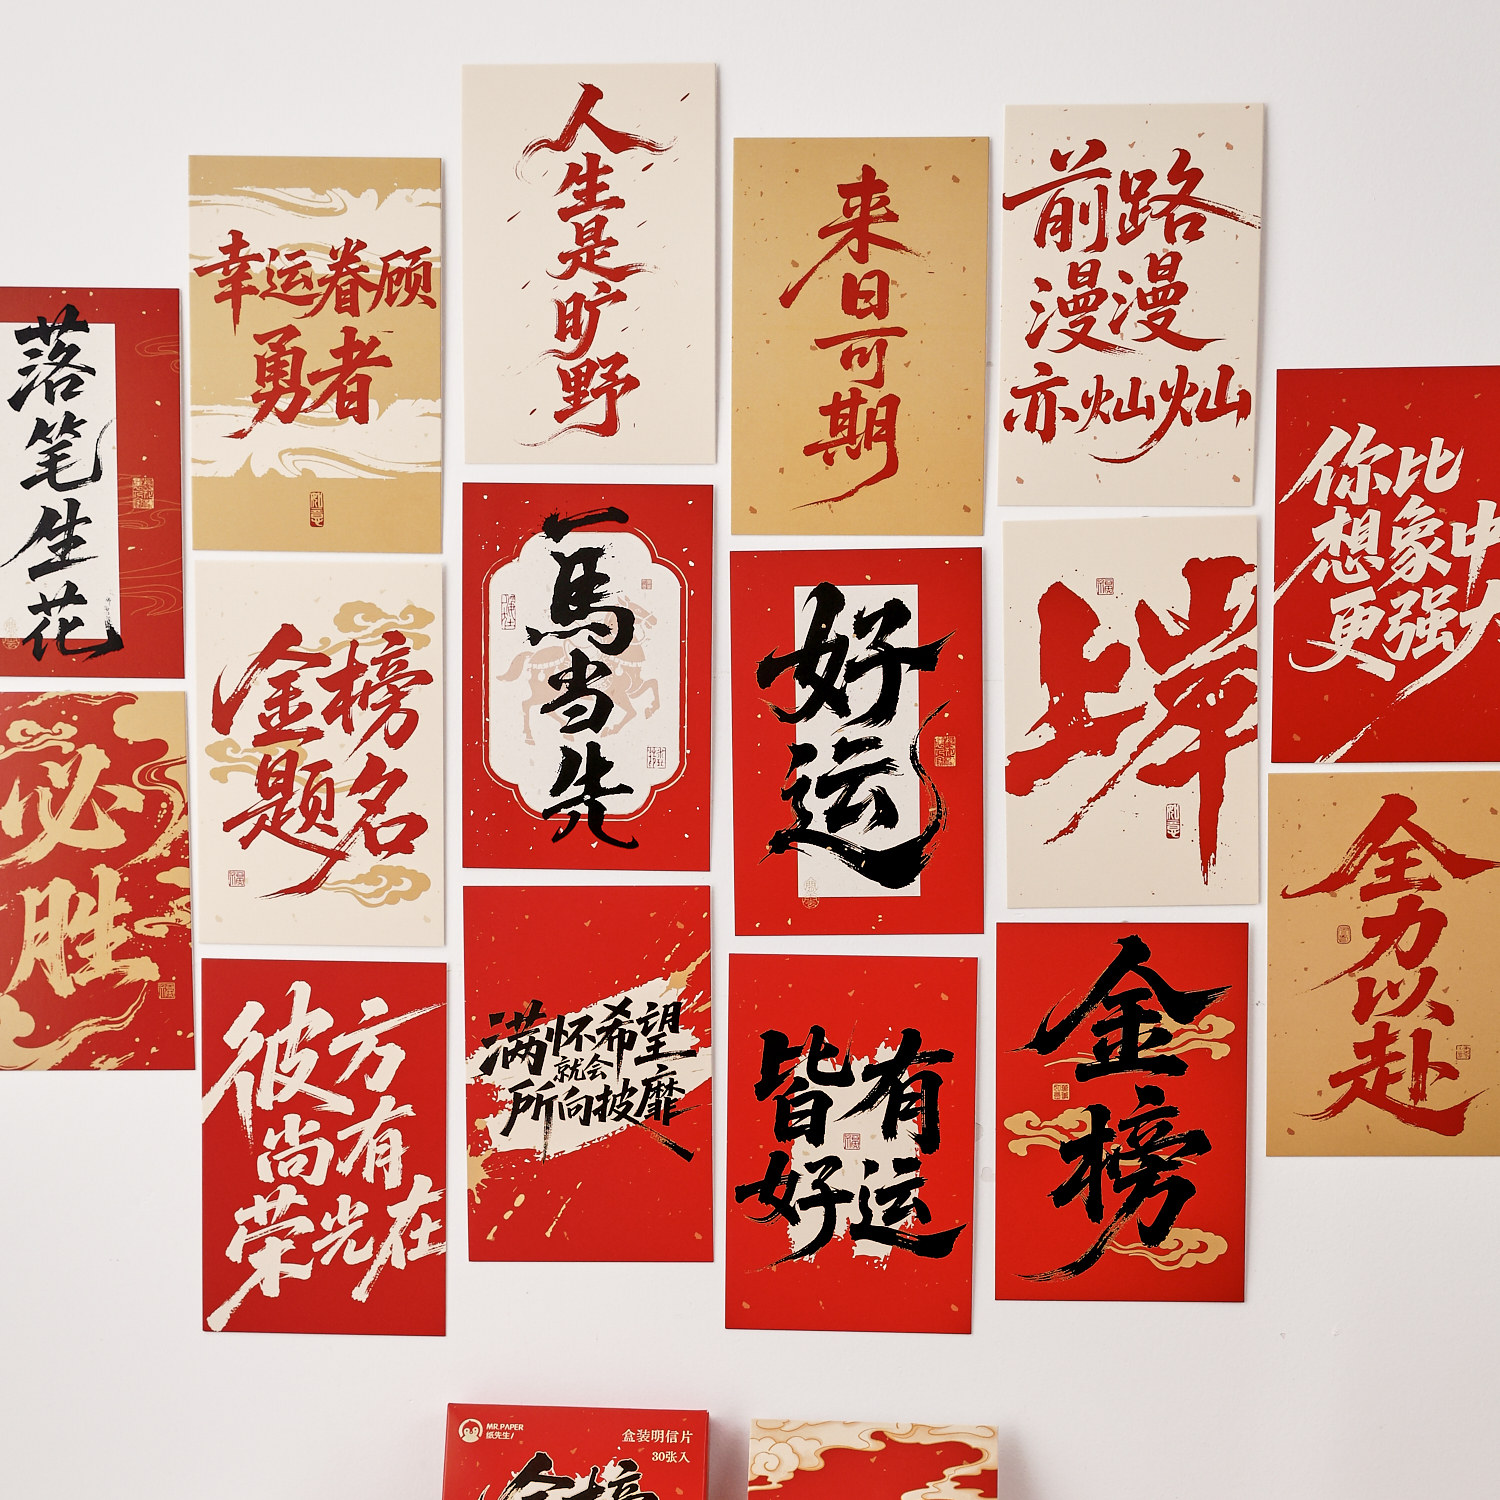 落笔生花
必胜
幸运眷顾
勇者
金榜
题名
彼方
尚有
荣光在
人生是旷野
一馬当先
满怀希望
就会
所向披靡
来日可期
好运
皆有
好运
前路
漫漫
亦灿灿
上岸
金榜
你比
想象中
更强大
全力以赴
MR.PAPER
纸先生
盒装明信片
30张入
金榜